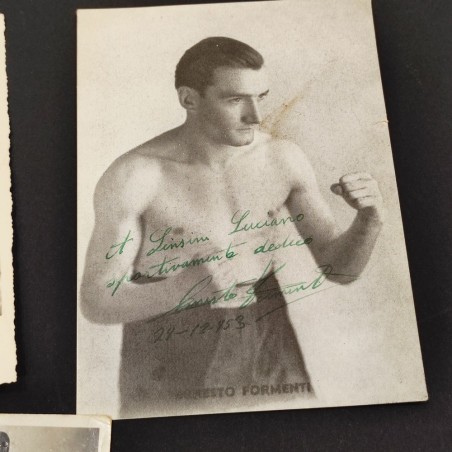 A Sensini Luciano
sportivamente dedico
Ernesto Formenti
29-12-953
ERNESTO FORMENTI